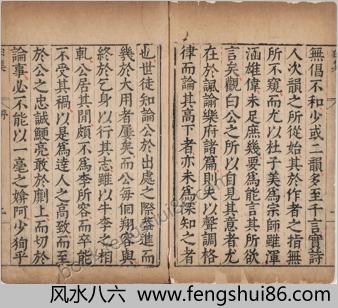 無倡不和少或二韻多至千言實詩
人次韻之所從始其於作者之指無
所不窺而尤以杜子美為宗師雖渾
涵雄偉未足庶幾要為能言其所欲
言矣觀曰公之所以自見其意者尤
在於諷諭樂府諸篇則矣以聲調格
律而論其高下者亦未為深知之者
也世徒知論公於出處之際盛進而
幾於大用者屢矣而公每佪翔容與
終於乞身以行其志雖以李之相
軋公居其間頗不為李所容而卒能
不受其禍以是為達人之高致而至
於公之忠誠鯁亮敢於劘上而切於
論事必不能以一毫之媕阿少狗乎
序
风水八六 www.fengshui86.com